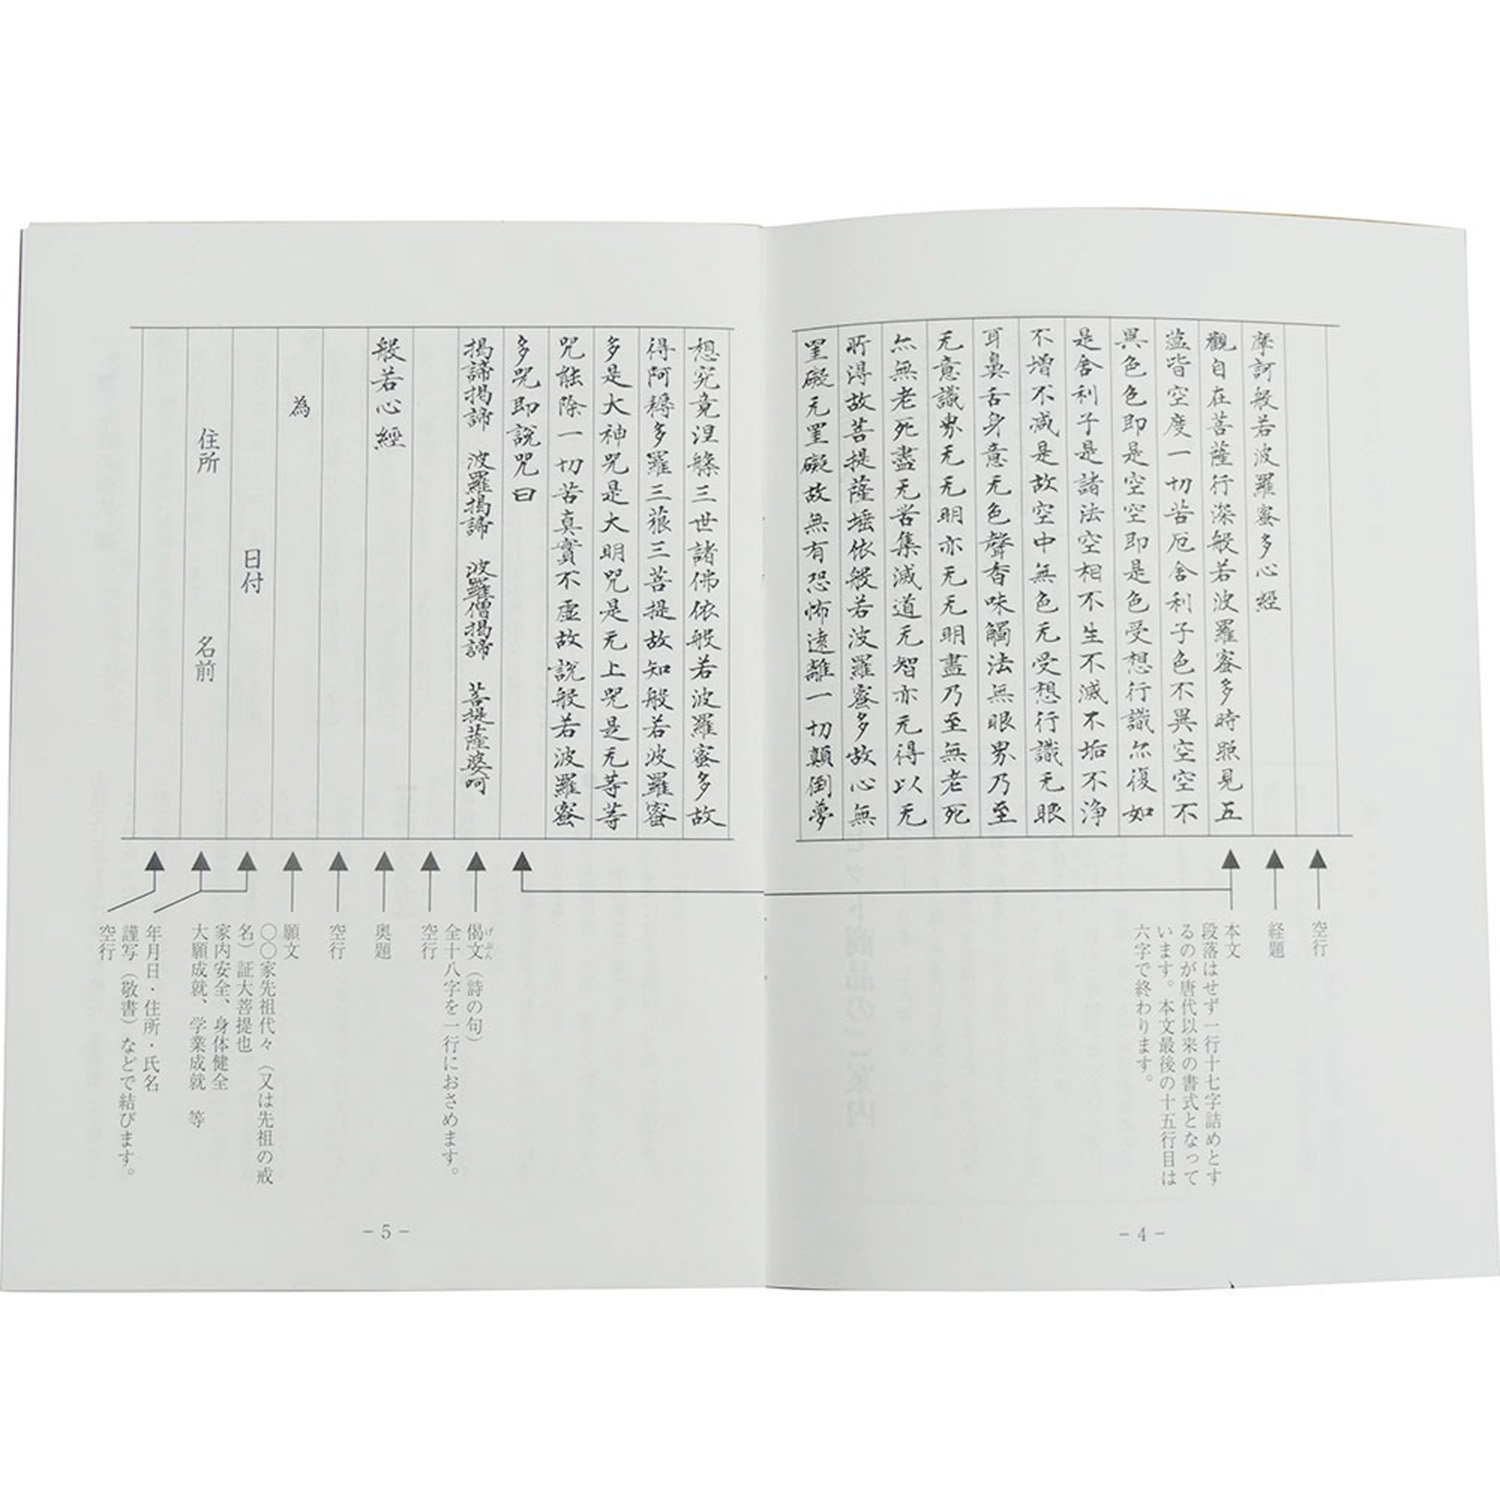 摩訶般若波羅蜜多心経
觀自在菩薩行深般若波羅蜜多時照見五
蘊皆空度一切苦厄舍利子色不異空空不
異色色即是空空即是色受想行識尓復如
是舎利子是諸法空相不生不滅不垢不浄
不増不減是故空中無色无受想行識无眼
耳鼻舌身意无色聲香味觸法無眼界乃至
无意識界无无明亦无无明盡乃至無老死
尓無老死盡无苦集滅道无智亦无得以无
所得故菩提薩埵依般若波羅蜜多故心無
罣礙无罣礙故無有恐怖遠離一切顛倒夢
空行
経題
本文
段落はせず一行十七字詰めとす
るのが唐代以来の書式となって
います。本文最後の十五行目は
六字で終わります。
- 4 -
想究竟涅槃三世諸佛依般若波羅蜜多故
得阿耨多羅三藐三菩提故知般若波羅蜜
多是大神咒是大明咒是无上咒是无等等
咒能除一切苦真實不虚故説般若波羅蜜
多咒即説咒曰
揭諦揭諦 波羅揭諦 波羅僧揭諦 菩提薩婆呵
般若心經
為
日付
住所 名前
げぶん
偈文（詩の句）
全十八字を一行におさめます。
空行
奥題
空行
願文
〇〇家先祖代々（又は先祖の戒
名）証大菩提也
家内安全、身体健全
大願成就、学業成就 等
年月日・住所・氏名
謹写（敬書）などで結びます。
空行
- 5 -